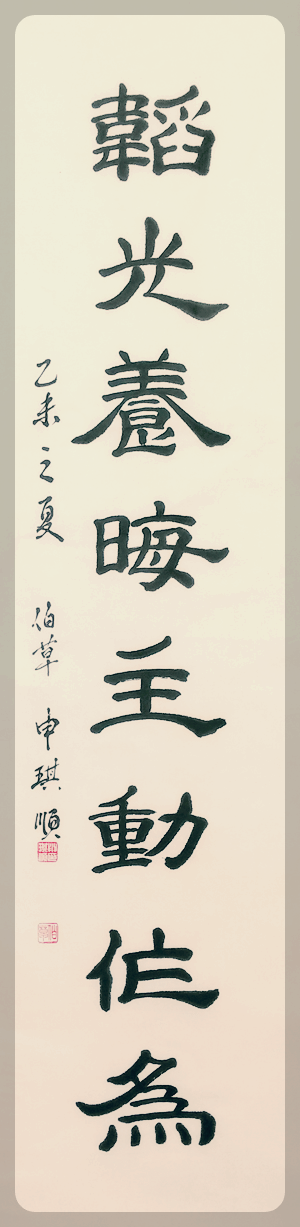 韜光養晦主動作為
乙未之夏 伯草 申琪順